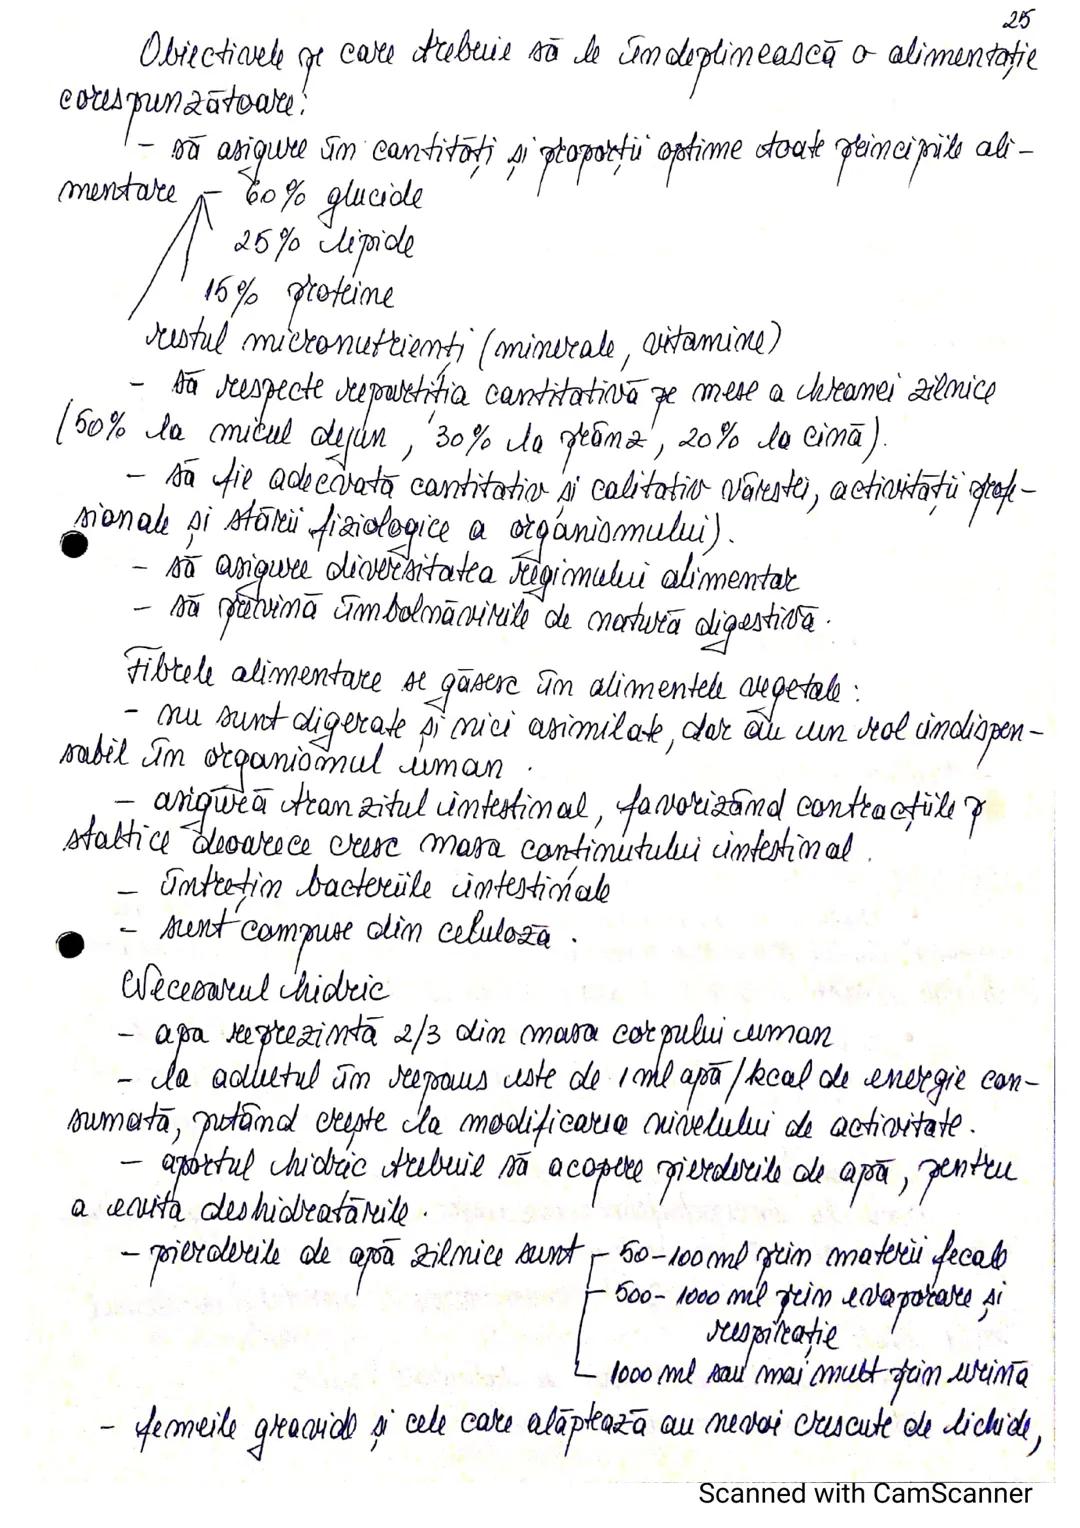 25
Obiectivele pe care trebuie să le îndeplinească o alimentație
corespunzătoare:
- să asigure în cantități și proporții optime toate principiile ali-
mentare - 60% glucide
25% lipide
15% proteine
restul micronutrienți (minerale, vitamine)
- să respecte repartiția cantitativă pe mese a hranei zilnice
(50% la micul dejun, 30% la prânz, 20% la cină).
- să fie adecvată cantitativ și calitativ vârstei, activității profe-
sionale și stării fiziologice a organismului).
- să asigure diversitatea regimului alimentar
- să prevină îmbolnăvirile de natură digestivă.
Fibrele alimentare se găsesc în alimentele vegetale:
- nu sunt digerate și nici asimilate, dar au un rol indispen-
sabil în organismul uman.
- asigură tranzitul intestinal, favorizând contracțiile p
staltice deoarece cresc masa conținutului intestinal.
- întrețin bacteriile intestinale
- sunt compuse din celuloză.
Necesarul hidric
- apa reprezintă 2/3 din masa corpului uman
- la adultul în repaus este de 1 ml apă/kcal de energie con-
sumată, putând crește la modificarea nivelului de activitate.
- aportul hidric trebuie să acopere pierderile de apă, pentru
a evita deshidratările.
- pierderile de apă zilnice sunt - 50-100 ml prin materii fecale
- 500-1000 ml prin evaporare și
respirație
- 1000 ml sau mai mult prin urină
- femeile gravide și cele care alăptează au nevoi crescute de lichide,
Scanned with CamScanner